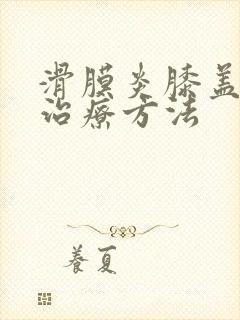 滑膜炎膝盖
治疗方法
養夏